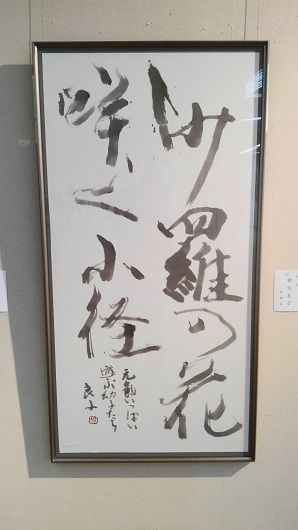 沙羅の花
咲く小径
元氣いっぱい
遊ぶ幼子たち
良子